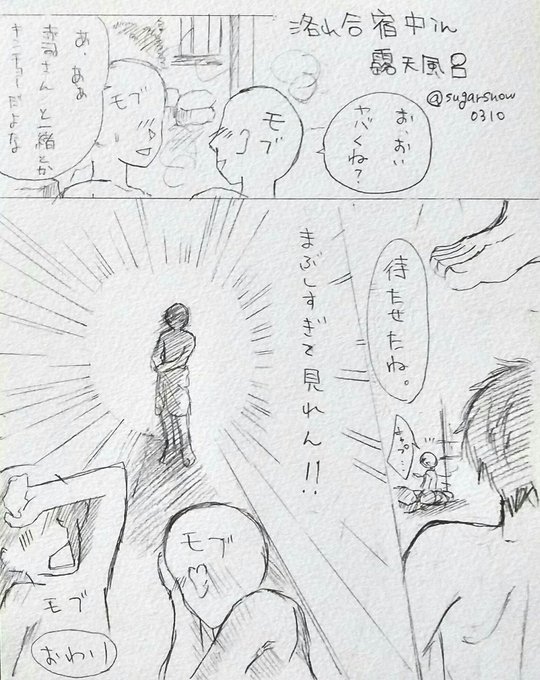 洛山合宿中in
露天風呂
@sugarsnow
0310
お、おい
ヤバくね？
モブ
モブ
あ、ああ
赤司さんと一緒とか
キンチョーだよな
待たせたね。
まぶしすぎて見れん!!
モブ
モブ
おわり